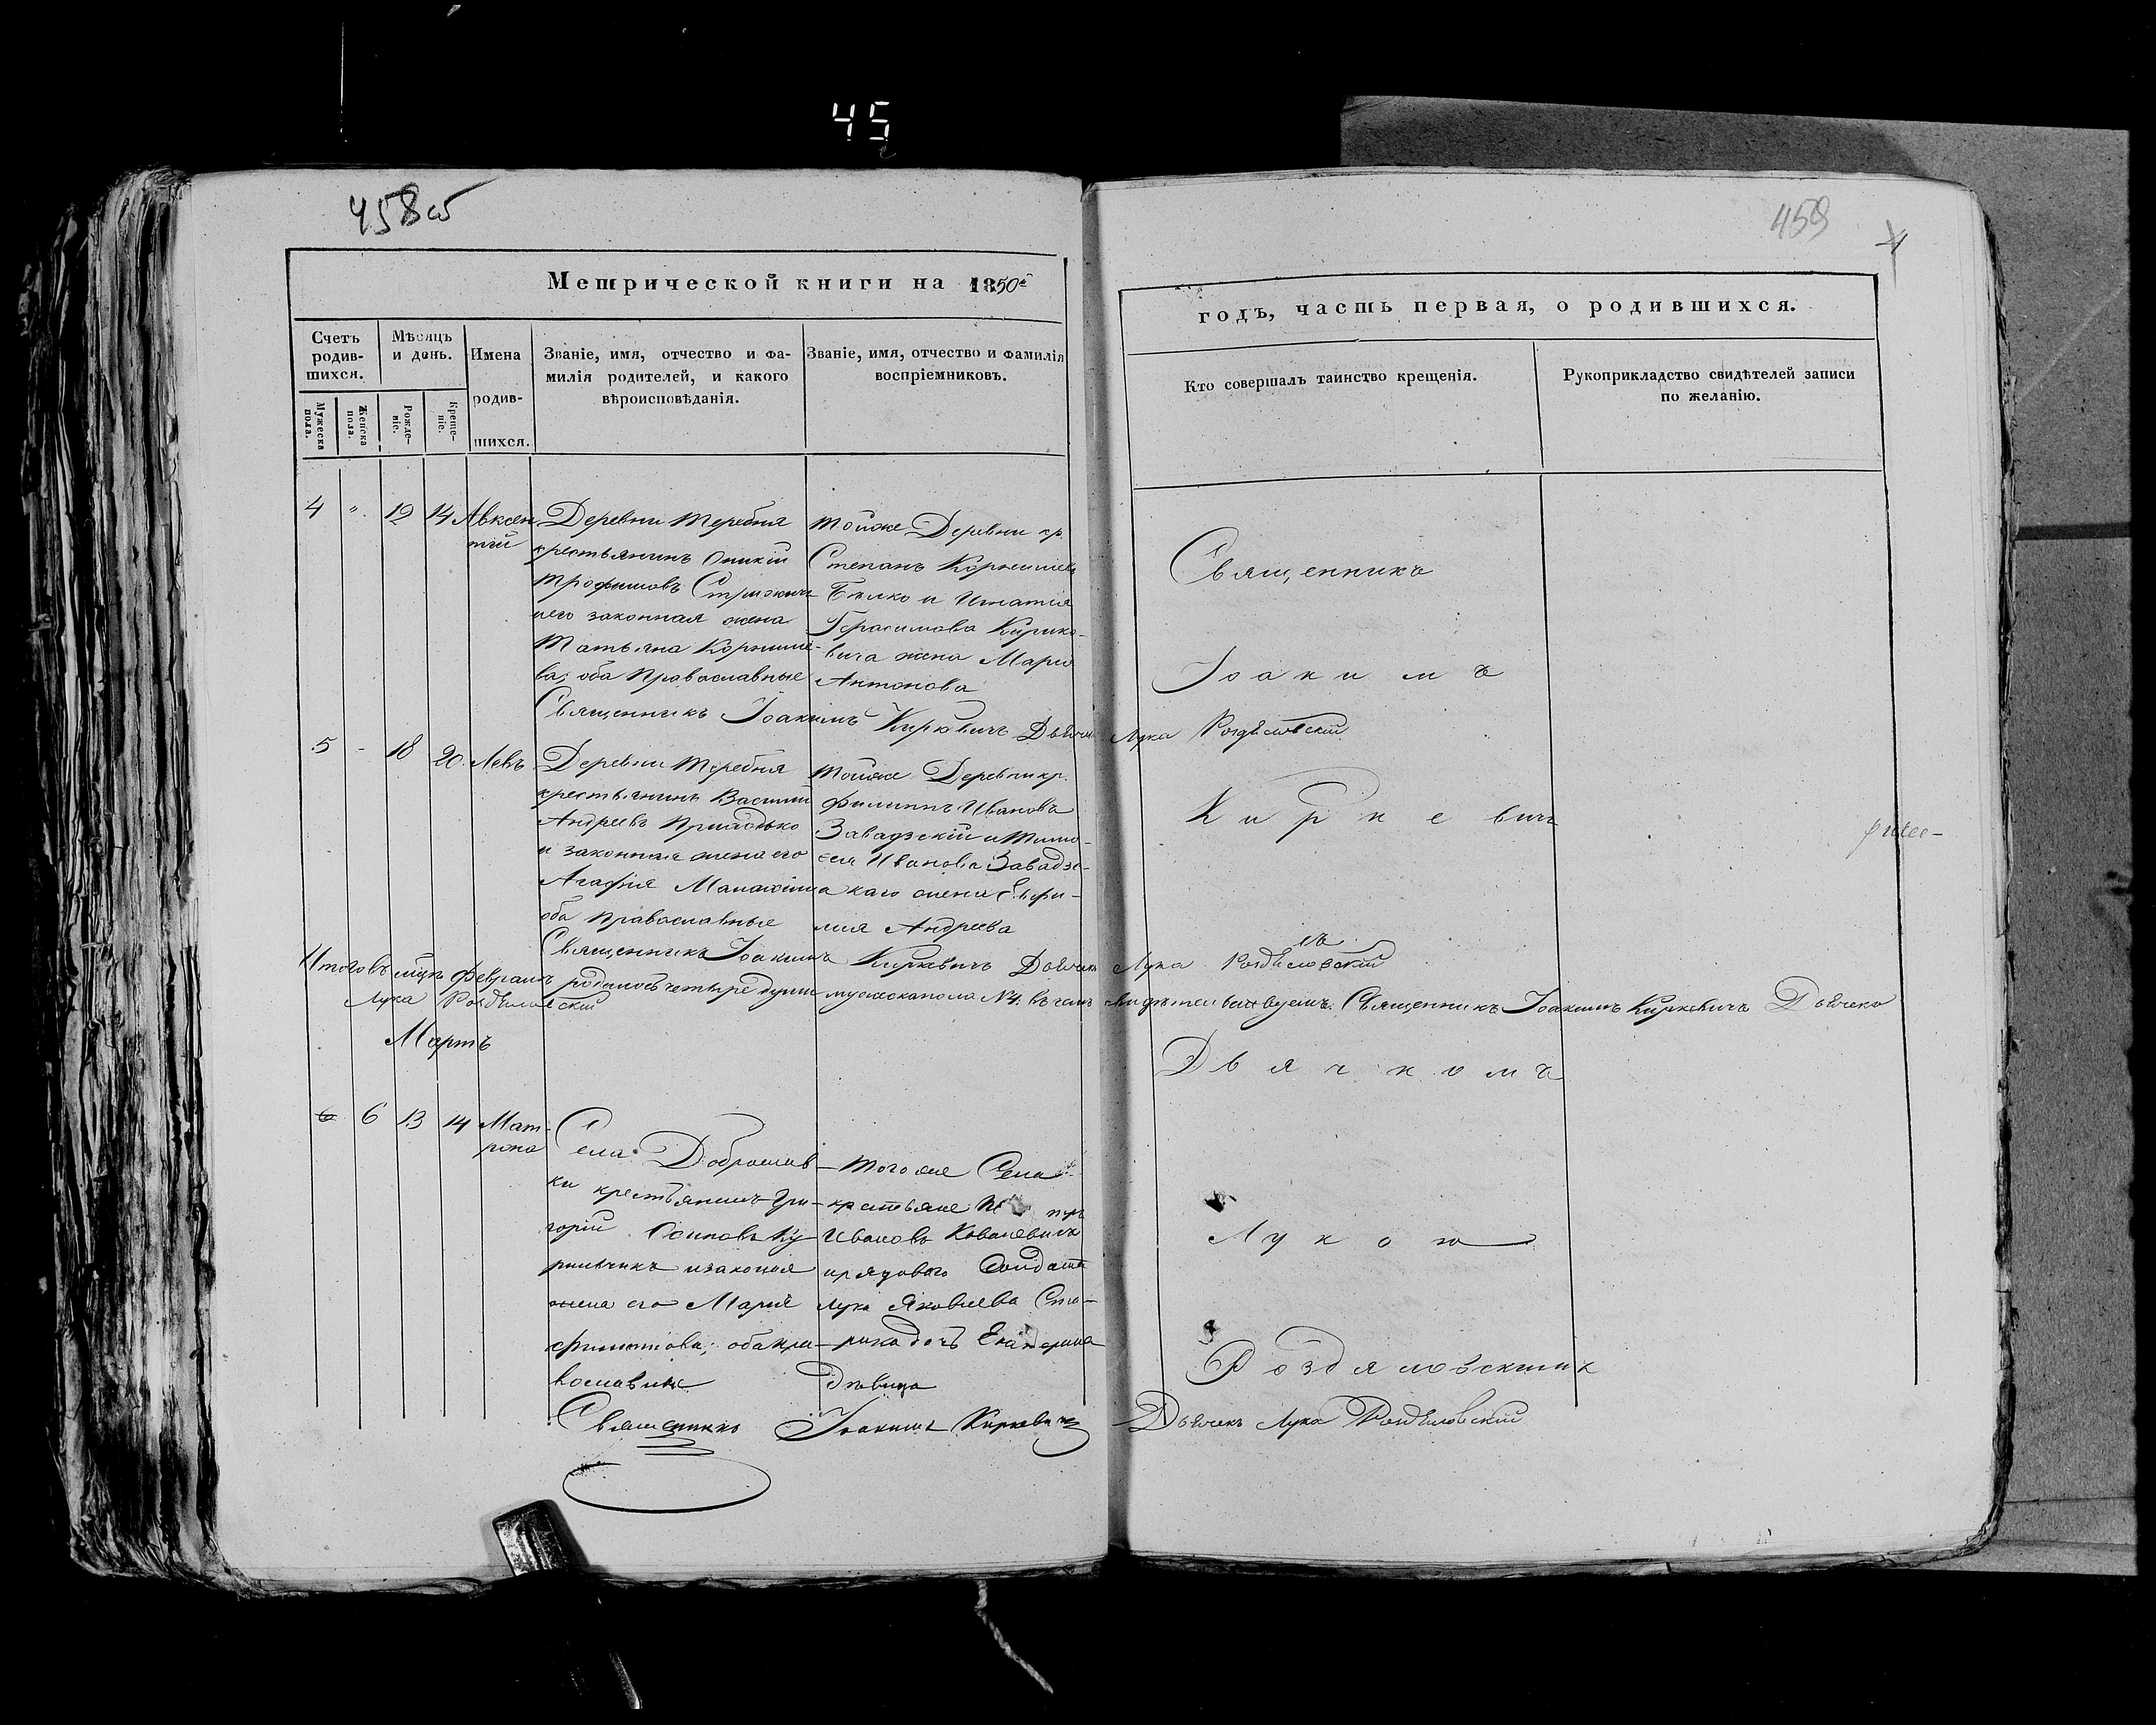 45
458об
459
Метрической книги на 1850й
годъ, часть первая, о родившихся.
Счетъ родившихся.
Мѣсяцъ и день.
Имена родившихся.
Званіе, имя, отчество и фамилія родителей, и какого вѣроисповѣданія.
Званіе, имя, отчество и фамилія воспріемниковъ.
Кто совершалъ таинство крещенія.
Рукоприкладство свидѣтелей записи по желанію.
Мужеска пола.
Женска пола.
Рожденіе.
Крещеніе.
4 " 12 14 Авксентий
Деревни Теребня
крестьянинъ Оникій
Трофимовъ Стрижичъ
и его законная жена
Татьяна Корнилиева; оба Православные
тойже Деревни кр.
Степанъ Корнилиевъ
Белко и Игнатия
Герасимова Кирика-
вича жена Мария
Антонова
Священникъ Іоакимъ Киркевичъ Дьячекъ Лука Роздѣловскій
5 - 18 20 Левъ
Деревни Теребня
крестьянинъ Василий
Андреевъ
и законная жена его
Агафия
оба православные
тойже Деревни кр.
Филиппъ Ивановъ
Завадзскій и Тимо-
фея Иванова Завадзс-
каго жена Евфи-
мия Андреева
Священникъ Іоакимъ Киркевичъ Дьячекъ Лука Роздѣловскій
Итого въ мцѣ Февралѣ родилось четыре души мужеска пола № 4. въ чемъ свидѣтельствуемъ. Священникъ Іоакимъ Киркевичъ Дьячекъ
Лука Роздѣловскій
Мартъ
6 13 14 Матрона
Села Доброслав-
ки крестьянинъ Гри-
горій Осиповъ Ку-
и законая
жена его Мария
оба пра-
вославные
того же Села
крестьяне
Ивановъ Ковалевичъ
и рядового Солдата
Лука Яковлева
дочь Екатерина
дѣвица
Священникъ Іоакимъ Киркевичъ Дьячекъ Лука Роздѣловскій
Священникъ
Іоакимъ
Киркевичъ
съ
Дьячкомъ
Лукою
Роздяловскимъ